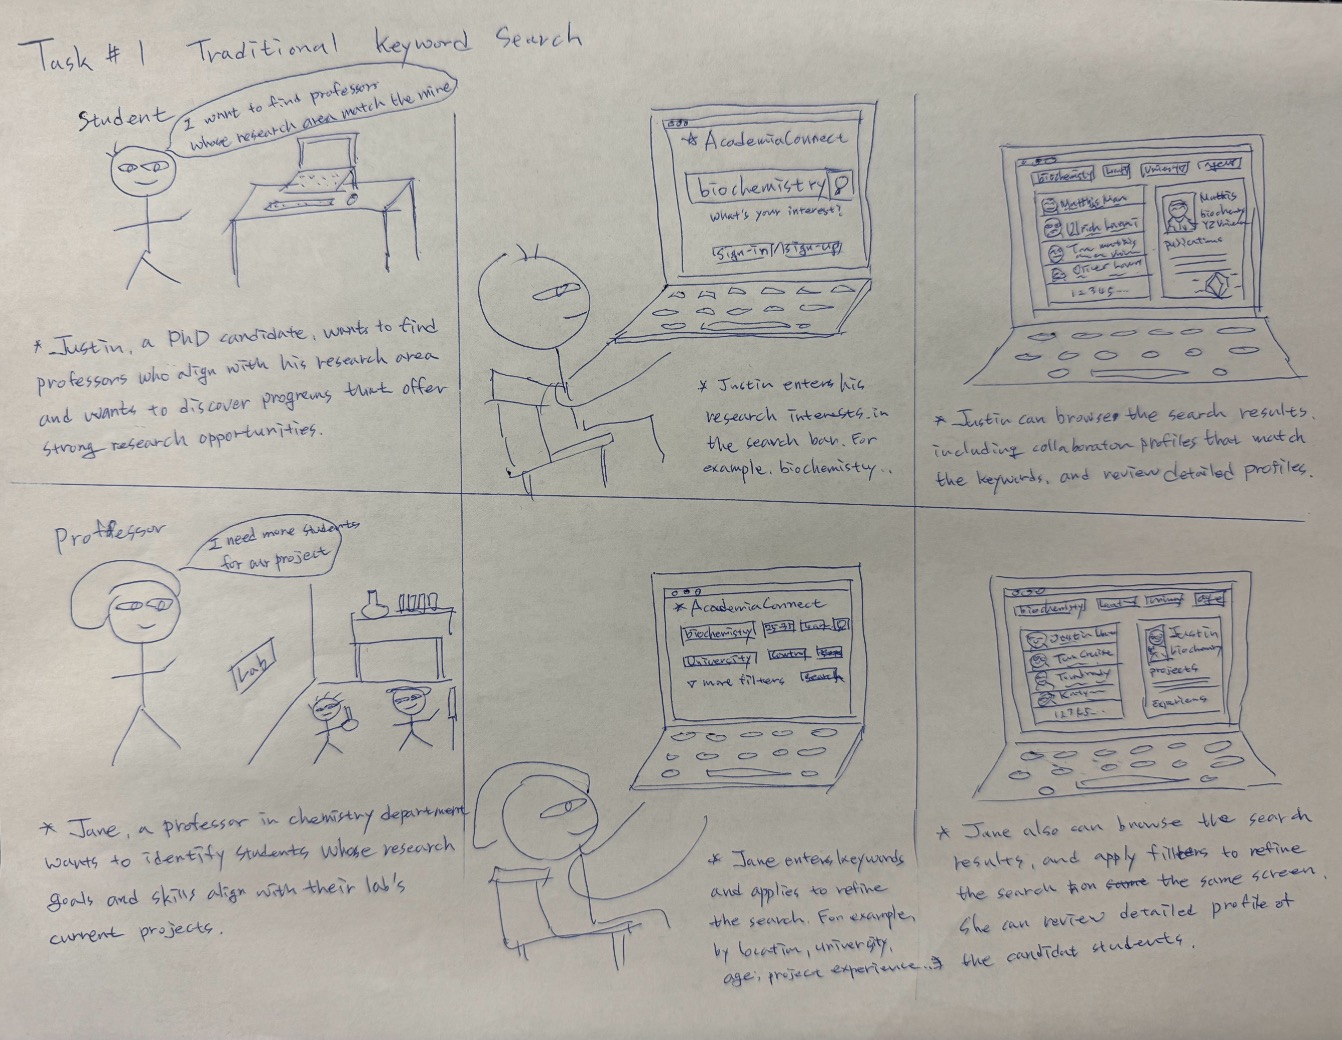 Task # 1 Traditional Keyword Search
Student
I want to find professors
whose research area match the mine
* Justin, a PhD candidate, wants to find
professors who align with his research area
and wants to discover programs that offer
strong research opportunities.
* AcademiaConnect
biochemistry
what's your interest?
sign-in / sign-up
* Justin enters his
research interests in
the search bar. For
example, biochemistry..
biochemistry
Matthis Man
1 2 3 4 5 ...
Matthis
biochem
* Justin can browse the search results,
including collaborator profiles that match
the keywords, and review detailed profiles.
Professor
I need more students
for our project
Lab
* Jane, a professor in chemistry department
wants to identify students whose research
goals and skills align with their lab's
current projects.
* AcademiaConnect
biochemistry
University
▽ more filters
search
* Jane enters keywords
and applies to refine
the search. For example,
by location, university,
age, project experience...
biochemistry
Tom Cruise
1 2 3 4 5 ...
Justin
projects
* Jane also can browse the search
results, and apply filters to refine
the search on the same screen.
She can review detailed profile of
* the candidat students.